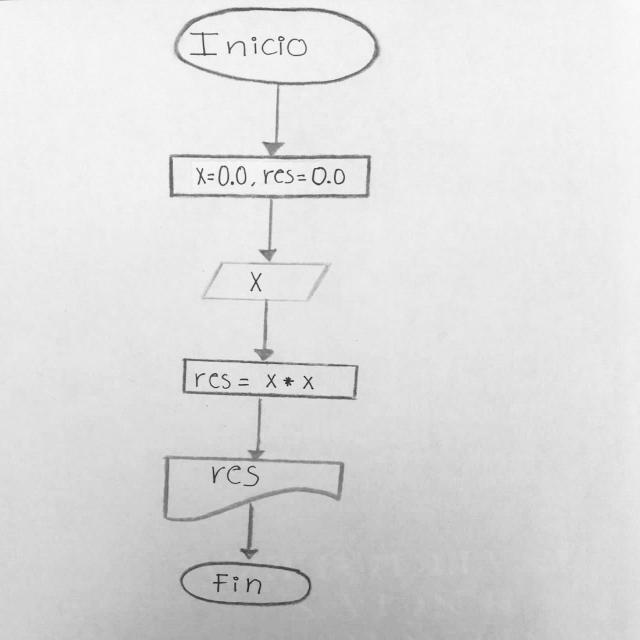 Inicio
X=0.0, res=0.0
X
res = x * x
res
Fin